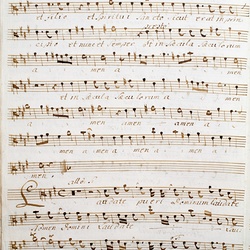 et filio et Spiritui Sancto sicut erat in prin
cipio et nunc et semper et in saecula saeculorum
amen a
et in saecula saeculorum a
men amen amen a
men amen amen amen a
men.
allo.
Laudate pueri Dominum laudate
nomen Domini laudate